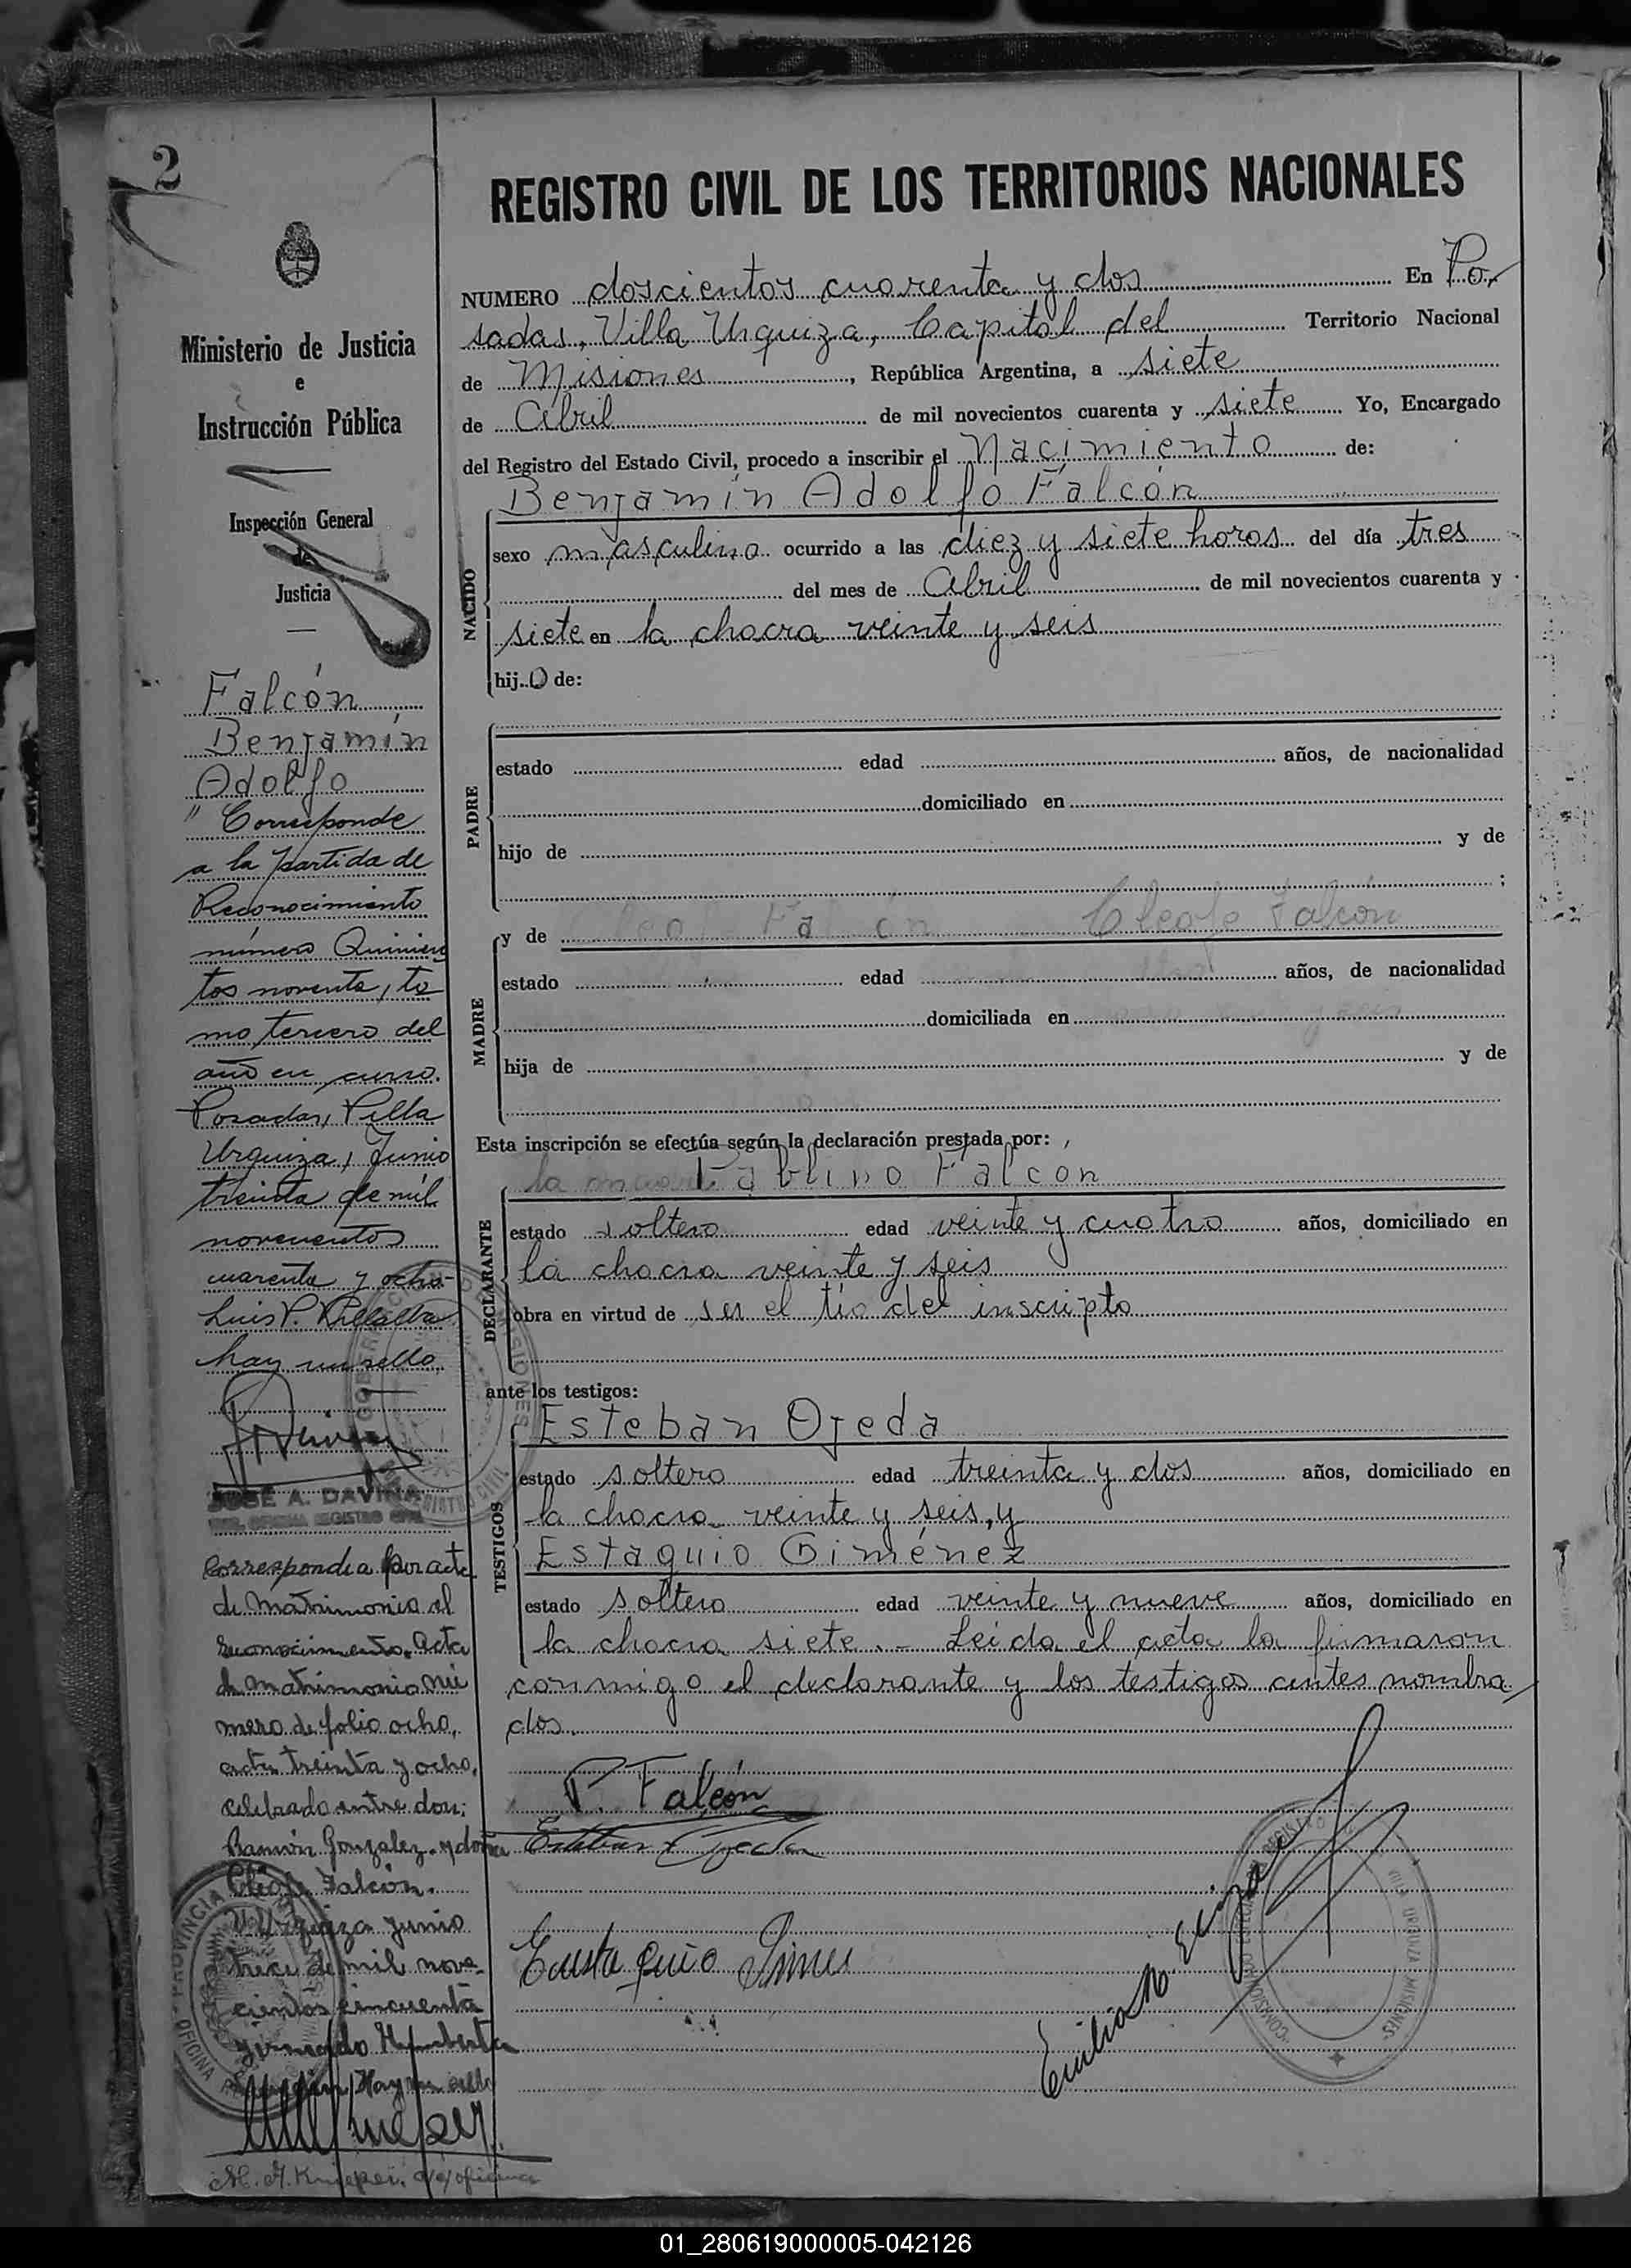 2
REGISTRO CIVIL DE LOS TERRITORIOS NACIONALES
NUMERO doscientos cuarenta y dos En Po-
sadas, Villa Urquiza, Capital del Territorio Nacional
de Misiones, República Argentina, a siete
de Abril de mil novecientos cuarenta y siete Yo, Encargado
del Registro del Estado Civil, procedo a inscribir el Nacimiento de:
Benjamín Adolfo Falcón
NACIDO
sexo masculino ocurrido a las diez y siete horas del día tres
del mes de Abril de mil novecientos cuarenta y
siete en la chacra veinte y seis
hijo de:
PADRE
estado edad años, de nacionalidad
domiciliado en
hijo de y de
;
MADRE
y de Cleofe Falcón
estado edad años, de nacionalidad
domiciliada en
hija de y de
Esta inscripción se efectúa según la declaración prestada por:
Paulino Falcon
DECLARANTE
estado soltero edad veinte y cuatro años, domiciliado en
la chacra veinte y seis
obra en virtud de ser el tío del inscripto
ante los testigos:
Esteban Ojeda
TESTIGOS
estado soltero edad treinta y dos años, domiciliado en
la chacra veinte y seis, y
Estaquio Giménez
estado soltero edad veinte y nueve años, domiciliado en
la chacra siete.- Leida el acta la firmaron
conmigo el declarante y los testigos antes nombra-
dos.
P. Falcón
Esteban Ojeda
Eustaquio
Emiliano
Ministerio de Justicia
e
Instrucción Pública
Inspección General
de
Justicia
Falcón
Benjamín
Adolfo
" Corresponde
a la partida de
Reconocimiento
número Quinien
tos noventa, to
mo tercero del
año en curso.
Posadas, Villa
Urquiza, Junio
treinta de mil
novecientos
cuarenta y ocho-
Luis P. Villalba
hay un sello
JOSE A. DAVIÑA
OFICINA REGISTRO CIVIL
Correspondía por acta
de Matrimonio el
reconocimiento. Acta
de Matrimonio nú
mero de folio ocho,
acta treinta y ocho,
celebrado entre don:
Ramón Gonzalez y doña
Cleofe Falcón.
V. Urquiza Junio
trece de mil nove-
cientos cincuenta
Hay un sello
01_280619000005-042126